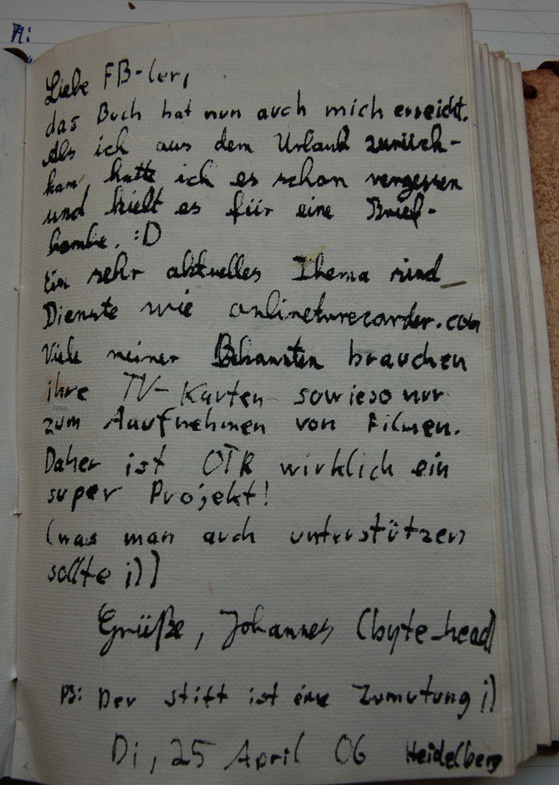 Liebe FB-ler,
das Buch hat nun auch mich erreicht.
Als ich aus dem Urlaub zurück-
kam hatte ich es schon vergessen
und hielt es für eine Brief-
bombe. :D
Ein sehr aktuelles Thema sind
Dienste wie onlinetvrecorder.com
Viele meiner Bekannten brauchen
ihre TV-Karten sowieso nur
zum Aufnehmen von Filmen.
Daher ist OTR wirklich ein
super Projekt!
(was man auch unterstützen
sollte ;))
Grüße, Johannes (byte_head)
PS: Der stift ist eine Zumutung ;)
Di, 25 April 06 Heidelberg